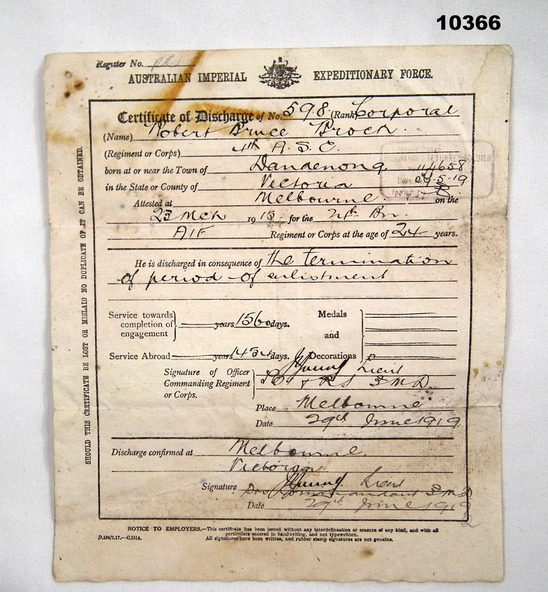 10366
Register No.
AUSTRALIAN IMPERIAL EXPEDITIONARY FORCE.
Certificate of Discharge of No. 598 (Rank) Corporal
(Name) Robert Bruce Brock
(Regiment or Corps) 4th A.S.C.
born at or near the Town of Dandenong
in the State or County of Victoria
Attested at Melbourne on the
23 Mch 1915 for the Bn.
AIF Regiment or Corps at the age of 24 years.
He is discharged in consequence of the termination
of period of enlistment
Service towards completion of engagement years 1560 days.
Medals and Decorations
Service Abroad years 1434 days.
Signature of Officer Commanding Regiment or Corps. Lieut
3 M.D.
Place Melbourne
Date 29th June 1919
Discharge confirmed at Melbourne
Victoria
Signature Lieut
Commandant 3 M.D.
Date 29th June 1919
NOTICE TO EMPLOYERS.—This certificate has been issued without any interlineation or erasure of any kind, and with all
particulars entered in handwriting, and not typewritten.
All signatures have been written, and rubber stamp signatures are not genuine.
SHOULD THIS CERTIFICATE BE LOST OR MISLAID NO DUPLICATE OF IT CAN BE OBTAINED.